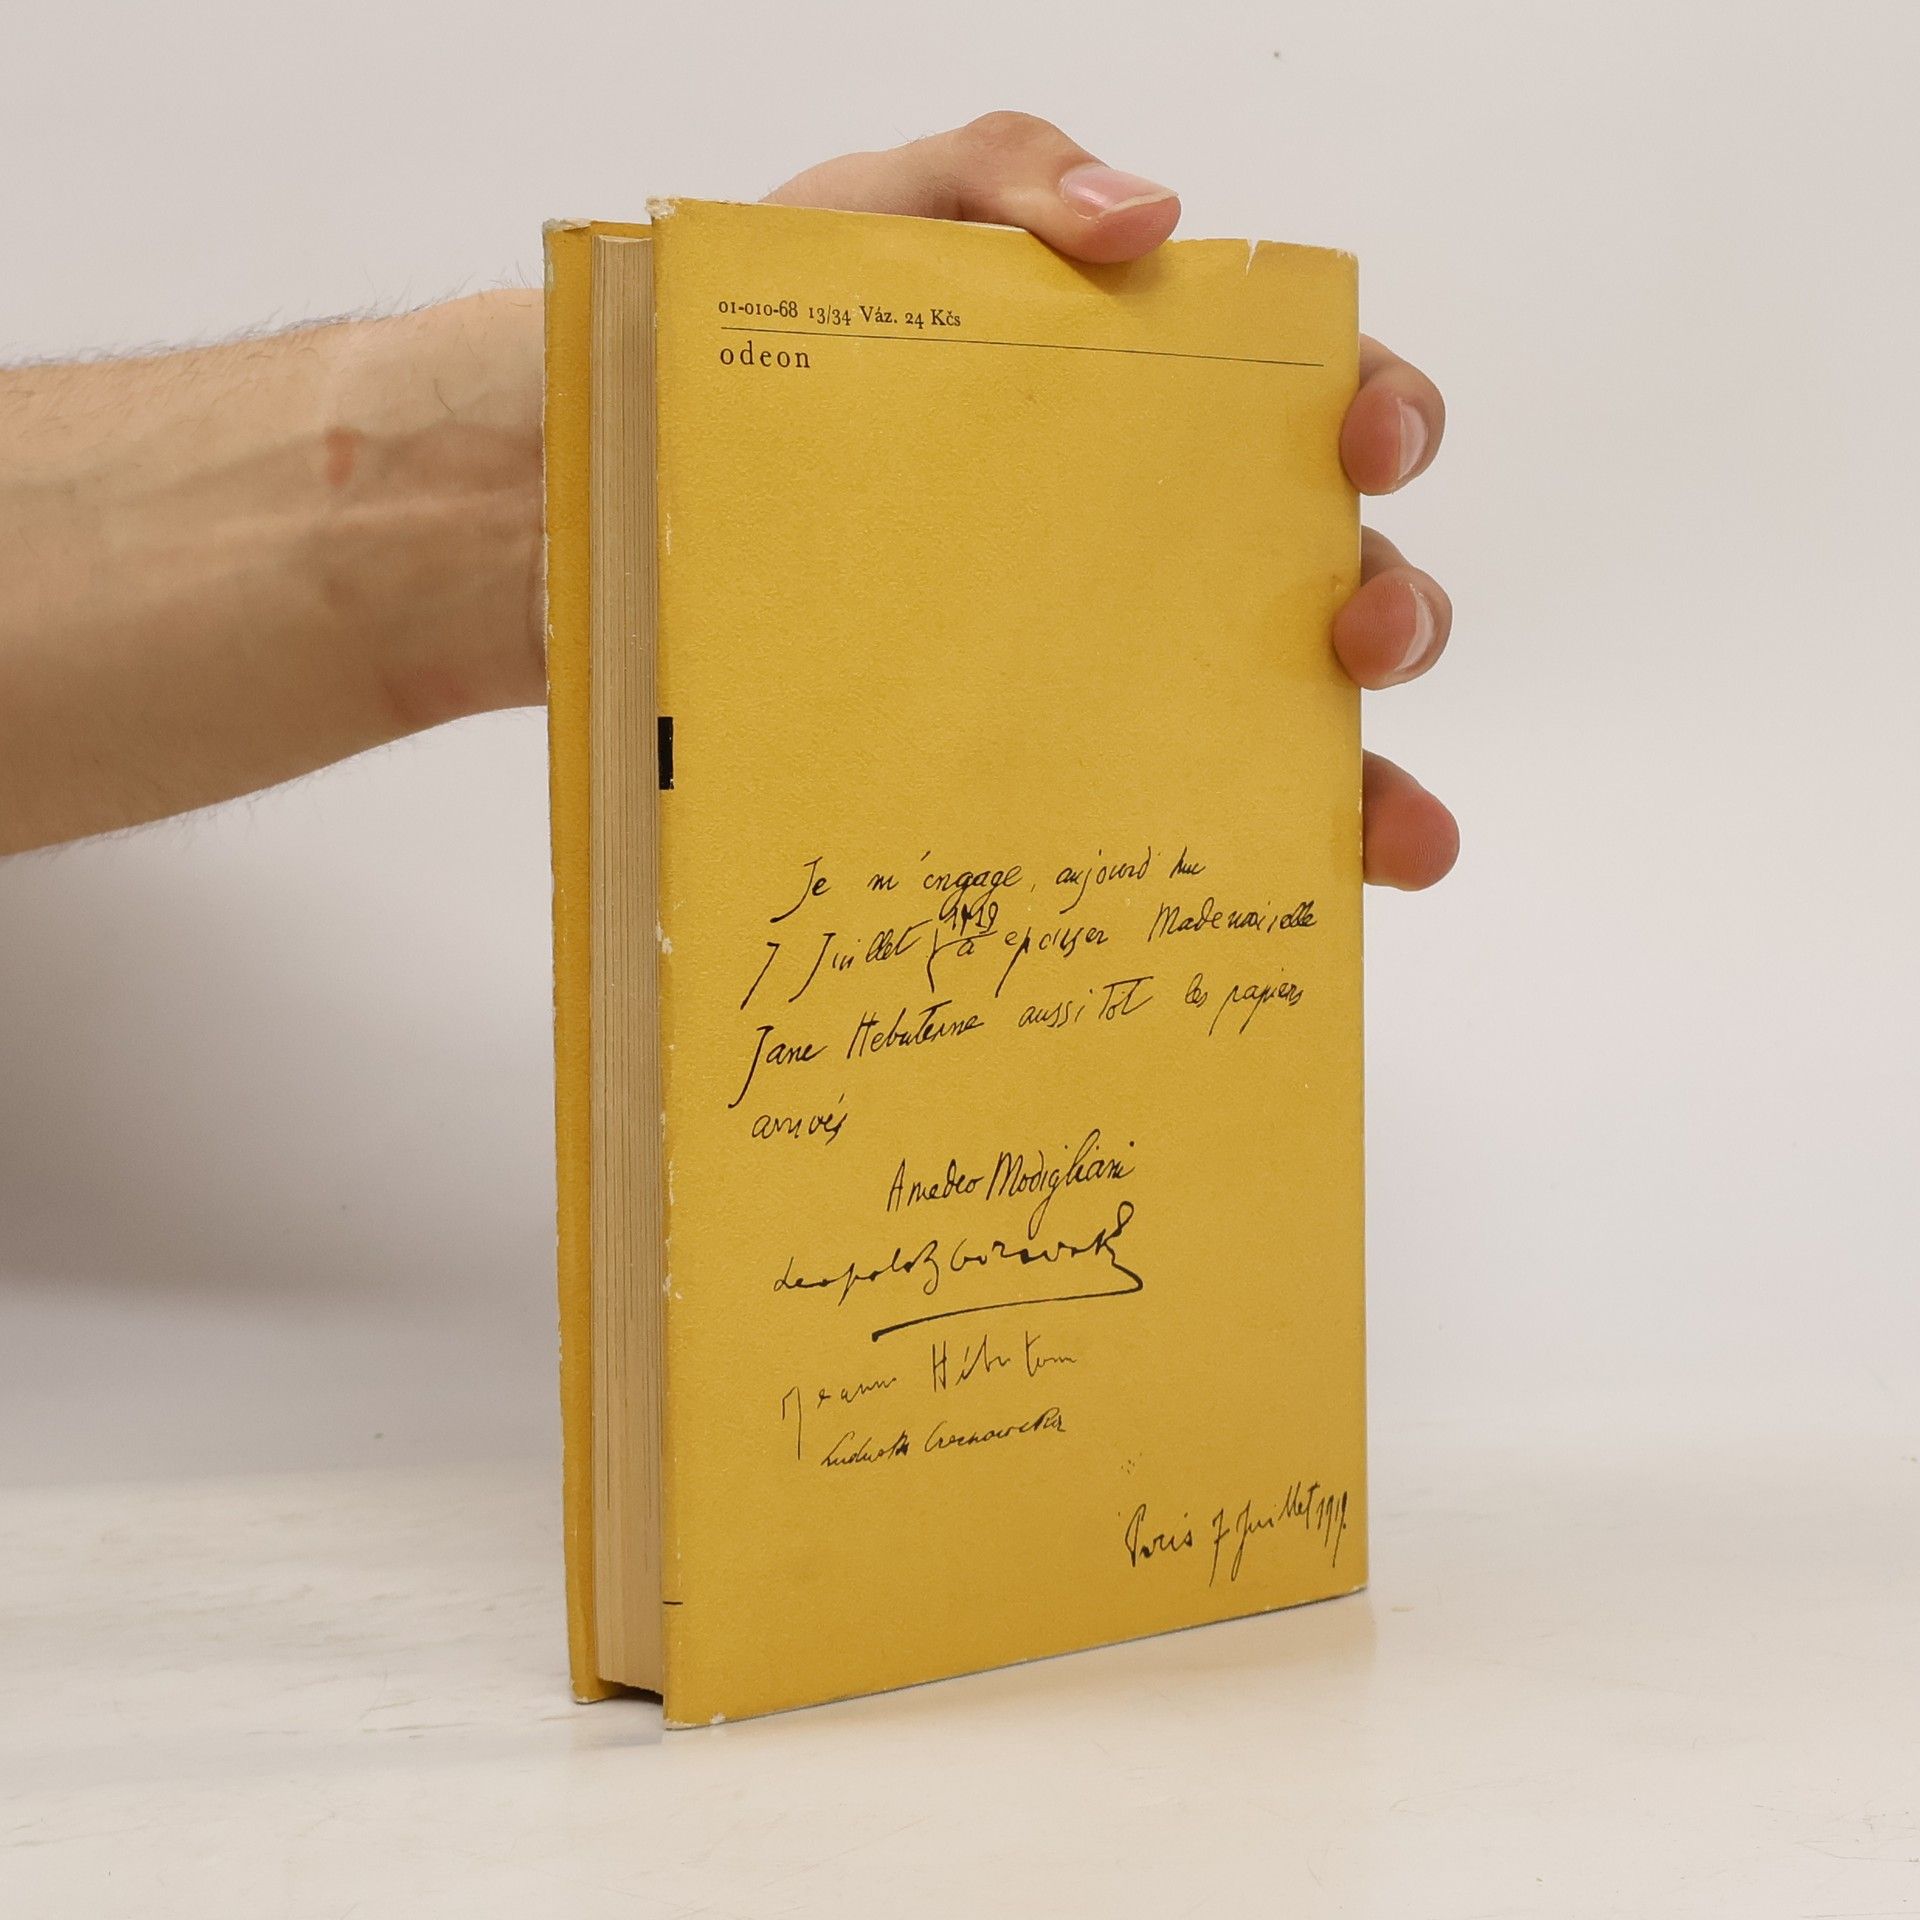 01-010-68 13/34 Váz. 24 Kčs
odeon
Je m'engage, aujourd hui
7 Juillet 1919 à epouser Mademoiselle
Jane Hebuterne aussi tôt les papiers
arrivés
Amedeo Modigliani
Leopold Zborowski
Jeanne Hébuterne
Paris 7 Juillet 1919